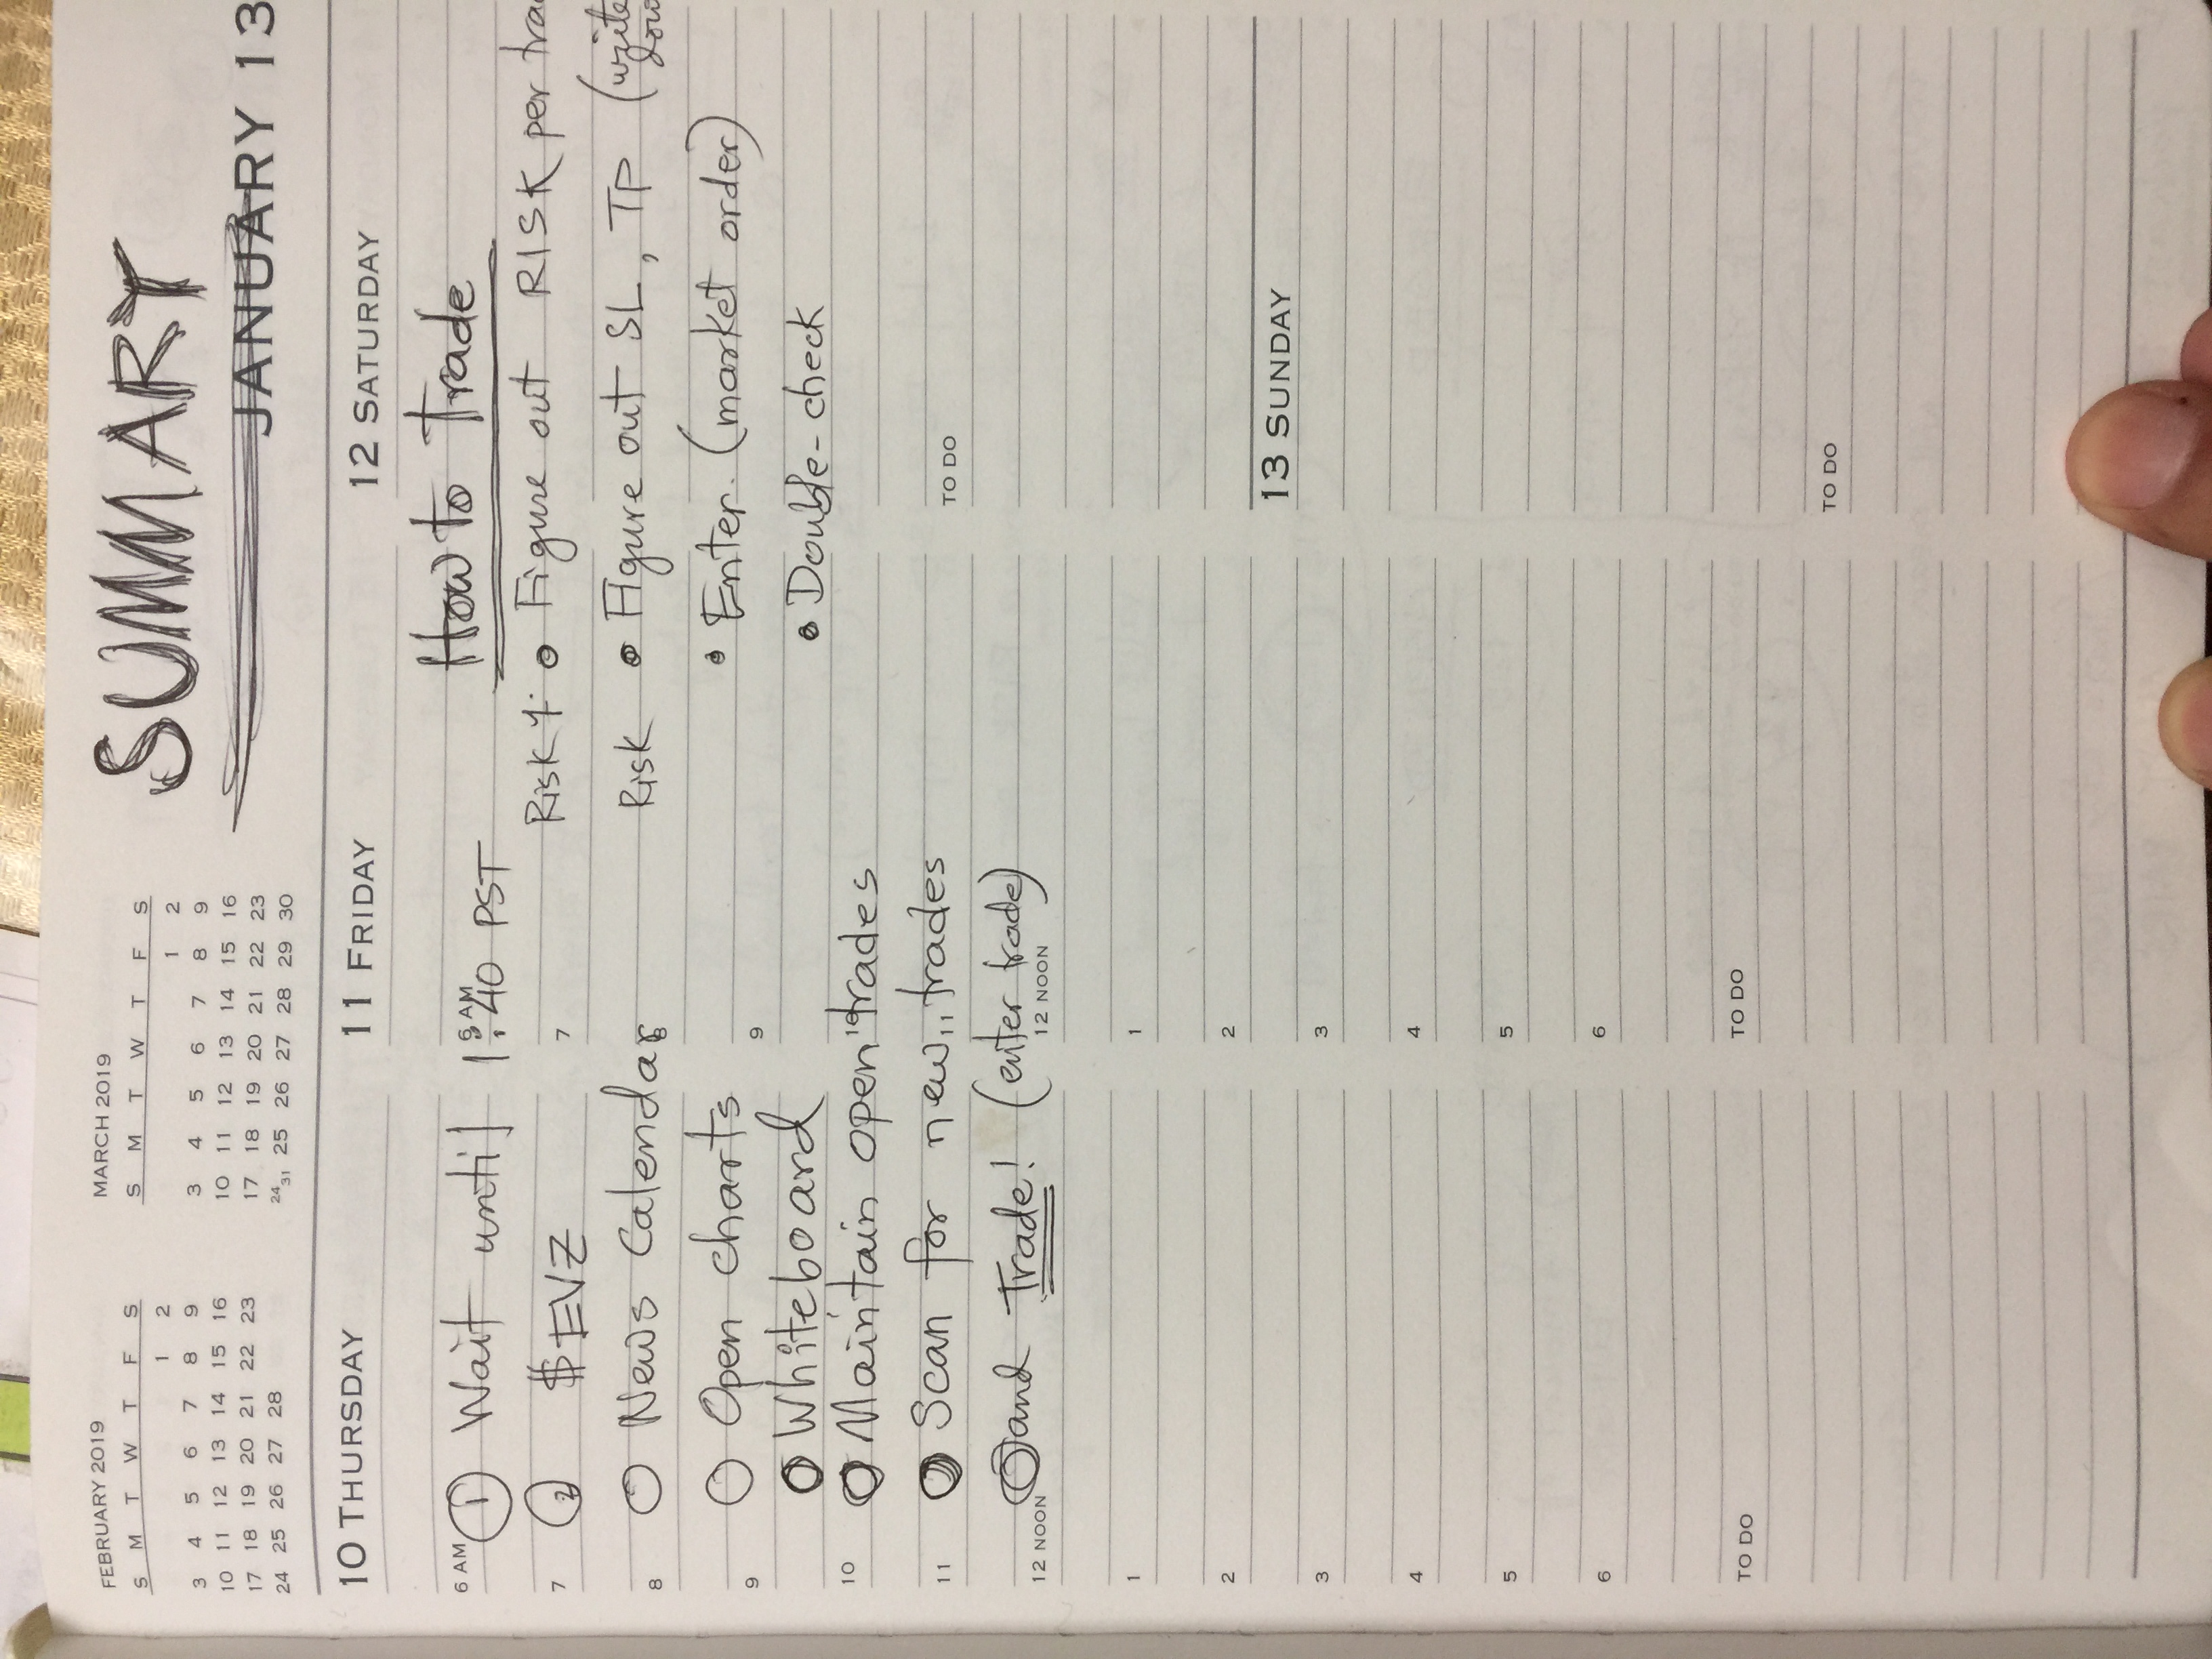 FEBRUARY 2019
S M T W T F S
1 2
3 4 5 6 7 8 9
10 11 12 13 14 15 16
17 18 19 20 21 22 23
24 25 26 27 28
MARCH 2019
S M T W T F S
1 2
3 4 5 6 7 8 9
10 11 12 13 14 15 16
17 18 19 20 21 22 23
24 31 25 26 27 28 29 30
SUMMARY
JANUARY 13
10 THURSDAY
6 AM
① Wait until 1:40 PST
7
② $EVZ
8
News Calendar
Open charts
9
Whiteboard
10
Maintain open trades
11
Scan for new trades
and Trade! (enter trade)
12 NOON
1
2
3
4
5
6
TO DO
11 FRIDAY
6 AM
7
8
9
10
11
12 NOON
1
2
3
4
5
6
TO DO
12 SATURDAY
How to Trade
Risk • Figure out RISK per
Risk • Figure out SL, TP (write
• Enter. (market order)
• Double-check
TO DO
13 SUNDAY
TO DO